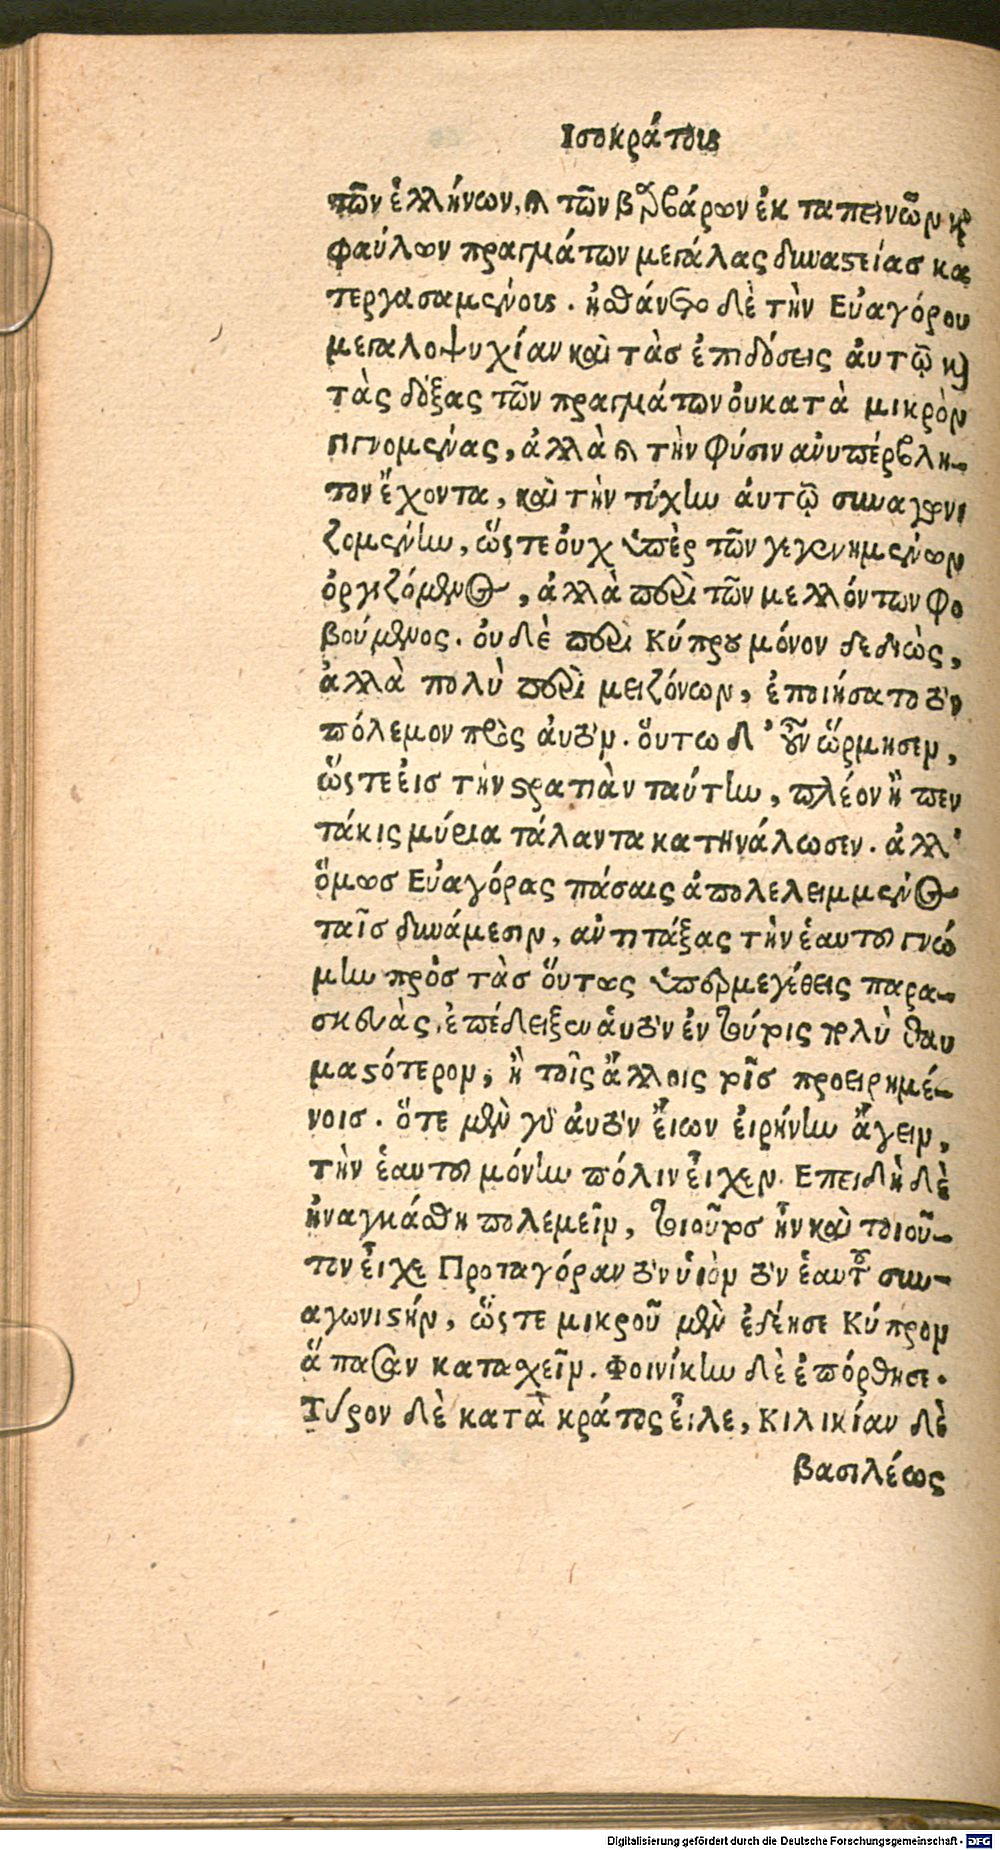 Ισοκράτους
τῶν ἑλλήνων, καὶ τῶν βαρβάρων ἐκ ταπεινῶν καὶ
φαύλων πραγμάτων μεγάλας δυναστείας κα
τεργασαμένους. ᾐσθάνετο δὲ τὴν Εὐαγόρου
μεγαλοψυχίαν καὶ τὰς ἐπιδόσεις ἀυτῷ καὶ
τὰς δόξας τῶν πραγμάτων ὀυκατὰ μικρὸν
γιγνομένας, ἀλλὰ καὶ τὴν φύσιν ανυπέρβλη-
τον ἔχοντα, καὶ τὴν τύχην ἀυτῷ συναγωνι
ζομένην, ὥςτε ὀυχ ὑπὲρ τῶν γεγενημένων
ὀργιζόμενος, ἀλλὰ περὶ τῶν μελλόντων φο
βούμενος. ὀυδὲ περὶ Κύπρου μόνον δεδιὼς,
ἀλλὰ πολὺ περὶ μειζόνων, ἐποιήσατο τὸν
πόλεμον πρὸς ἀυτόν. ὅυτω δ' οὖν ὥρμησεν,
ὥςτε ἐις τὴν στρατιὰν ταύτην, πλέον ἢ πεν
τάκις μύρια τάλαντα κατηνάλωσεν. ἀλλ'
ὅμως Εὐαγόρας πάσαις ἀπολελειμμένος
ταῖς δυνάμεσιν, αντιτάξας τὴν ἑαυτοῦ γνώ
μην πρὸς τὰς ὅυτως ὑπερμεγέθεις παρα-
σκευὰς, ἐπέδειξεν ἁυτὸν ἐν τούτοις πολὺ θαυ
μαστότερον, ἢ τοῖς ἄλλοις τοῖς προειρημέ-
νοις. ὅτε μὲν γὰρ ἀυτὸν ἔιων ἐιρήνην ἄγειν,
τὴν ἑαυτοῦ μόνην πόλιν ἔιχεν. Επειδὴ δὲ
ἠναγκάσθη πολεμεῖν, τοιοῦτος ἦν καὶ τοιοῦ-
τον ἔιχε Πρωταγόραν τὸν ὑιὸν τὸν ἑαυτοῦ συν-
αγωνιστήν, ὥςτε μικροῦ μὲν ἐδέησε Κύπρον
ἅπασαν κατασχεῖν. Φοινίκην δὲ ἐπόρθησε.
Τύρον δὲ κατὰ κράτος εἷλε, Κιλικίαν δὲ
βασιλέως
Digitalisierung gefördert durch die Deutsche Forschungsgemeinschaft - DFG